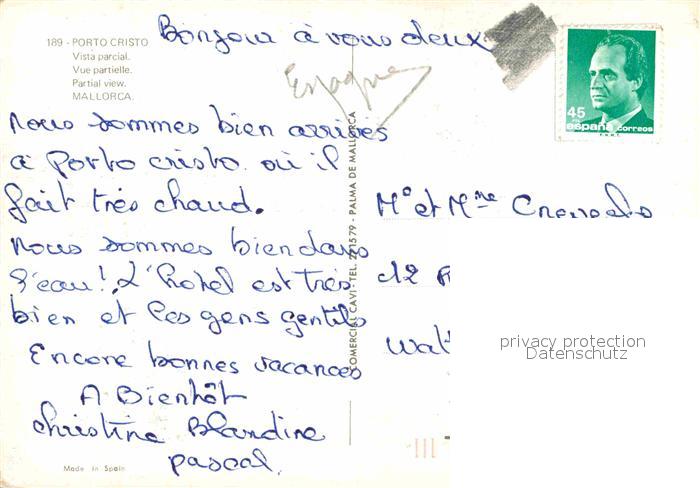 189 - PORTO CRISTO
Vista parcial.
Vue partielle.
Partial view.
MALLORCA.
Bonjour à vous deux
Espagne
45
PTA
españa correos
F.N.M.T.
Nous sommes bien arrivés
à Porto cristo où il
fait très chaud.
Nous sommes bien dans
l'eau! L'hotel est très
bien et les gens gentils
Encore bonnes vacances
A Bientôt
Christine Blandine
pascal.
COMERCIAL CAVI - TEL. 221579 - PALMA DE MALLORCA
Mr et Mme
12
Wat
privacy protection
Datenschutz
Made in Spain